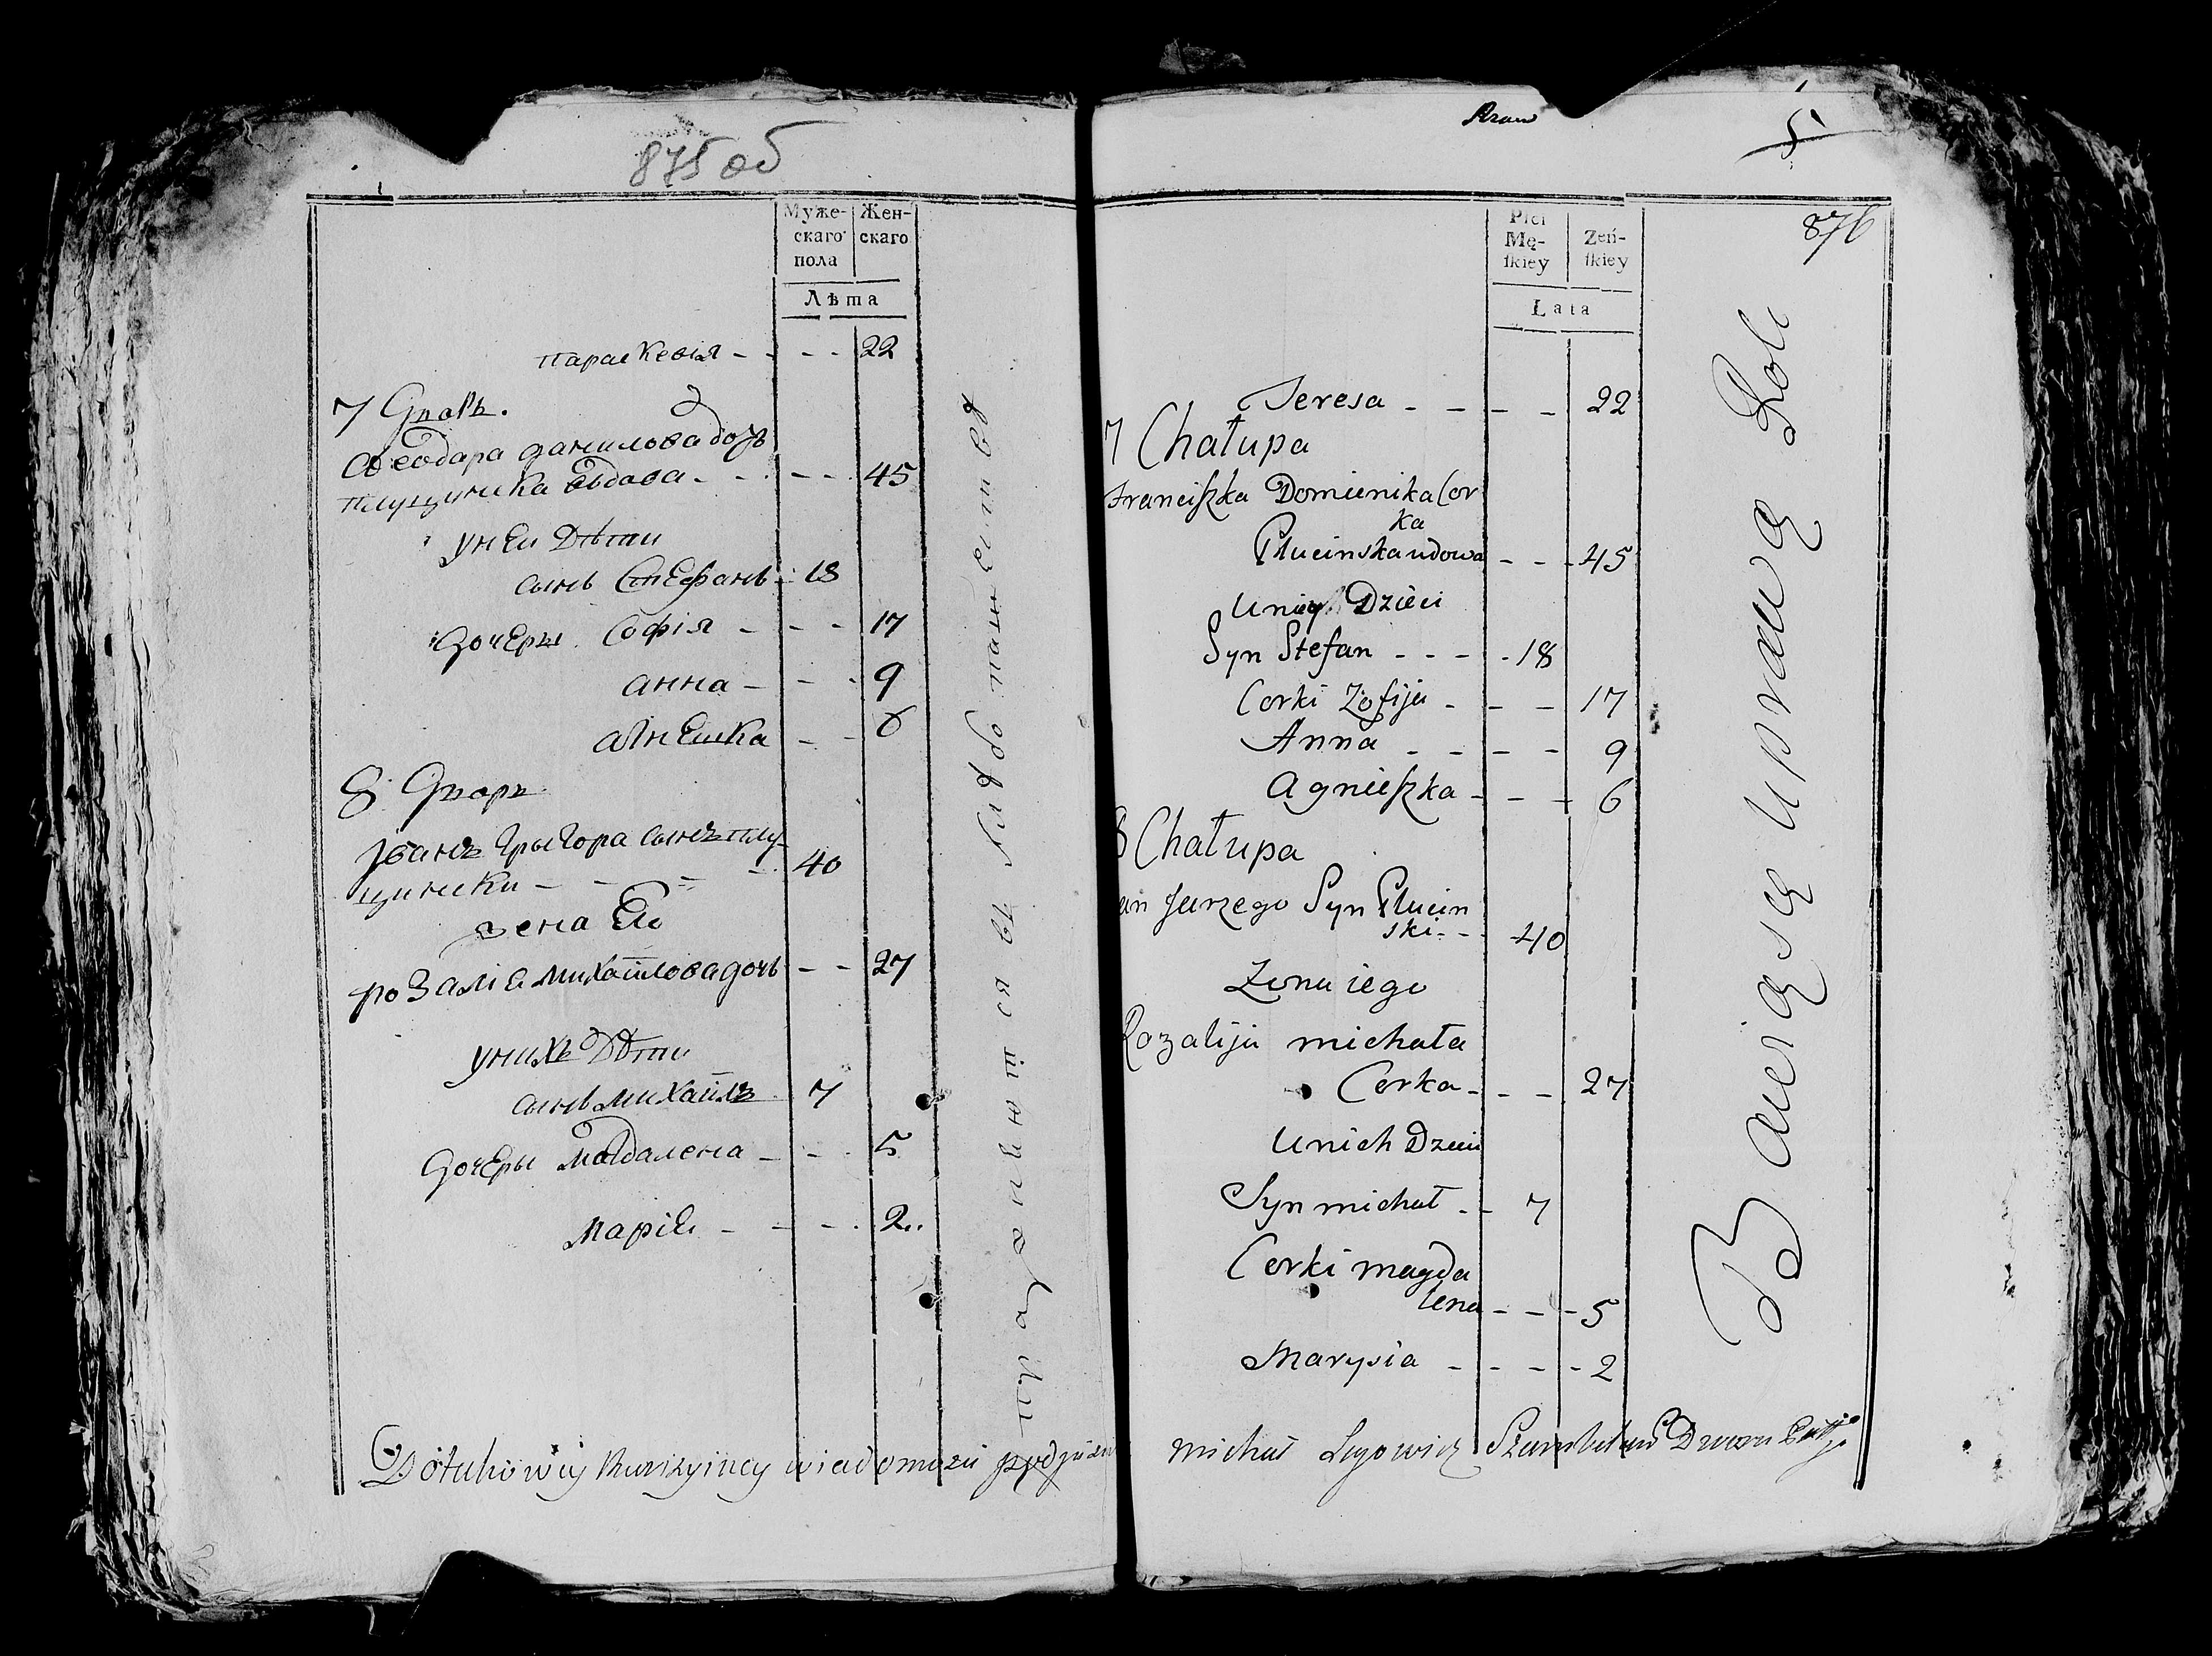 875 об
Муже-
скаго
пола
Жен-
скаго
Лѣта
параскевія - - - - 22
7 Дворъ.
Ѳеодара данилова дочъ
плущинска вдова - - - - 45
у неи Дѣти
сынъ Стефанъ - 18
дочеры Софія - - - 17
анна - - - 9
агнешка - - 6
8 Дворъ
Іванъ Грыгора сынъ плу-
цински - - - - 40
жена Его
розаліа михаилова дочь - - 27
у нихъ Дѣти
сынъ михаилъ 7
дочеры магдалена - - - 5
маріа - - - - 2
5
876
Płci
Mę-
ſkiey
Żeń-
ſkiey
Lata
Teresa - - - - 22
7 Chałupa
Franciſzka Domienika Cor
ka
Plucinska udowa - - - 45
u niey Dzieci
Syn Stefan - - - - 18
Corki Zofija - - - 17
Anna - - - - 9
Agnieſzka - - - 6
8 Chałupa
Jan Jerzego Syn Plucin
ski - - 40
Zona iego
Rozalija michała
Corka - - - 27
u nich Dzieci
Syn michał - - 7
Corki magda
lena - - - 5
Marysia - - - - 2
Bawiąsą uprawą Roli
michał